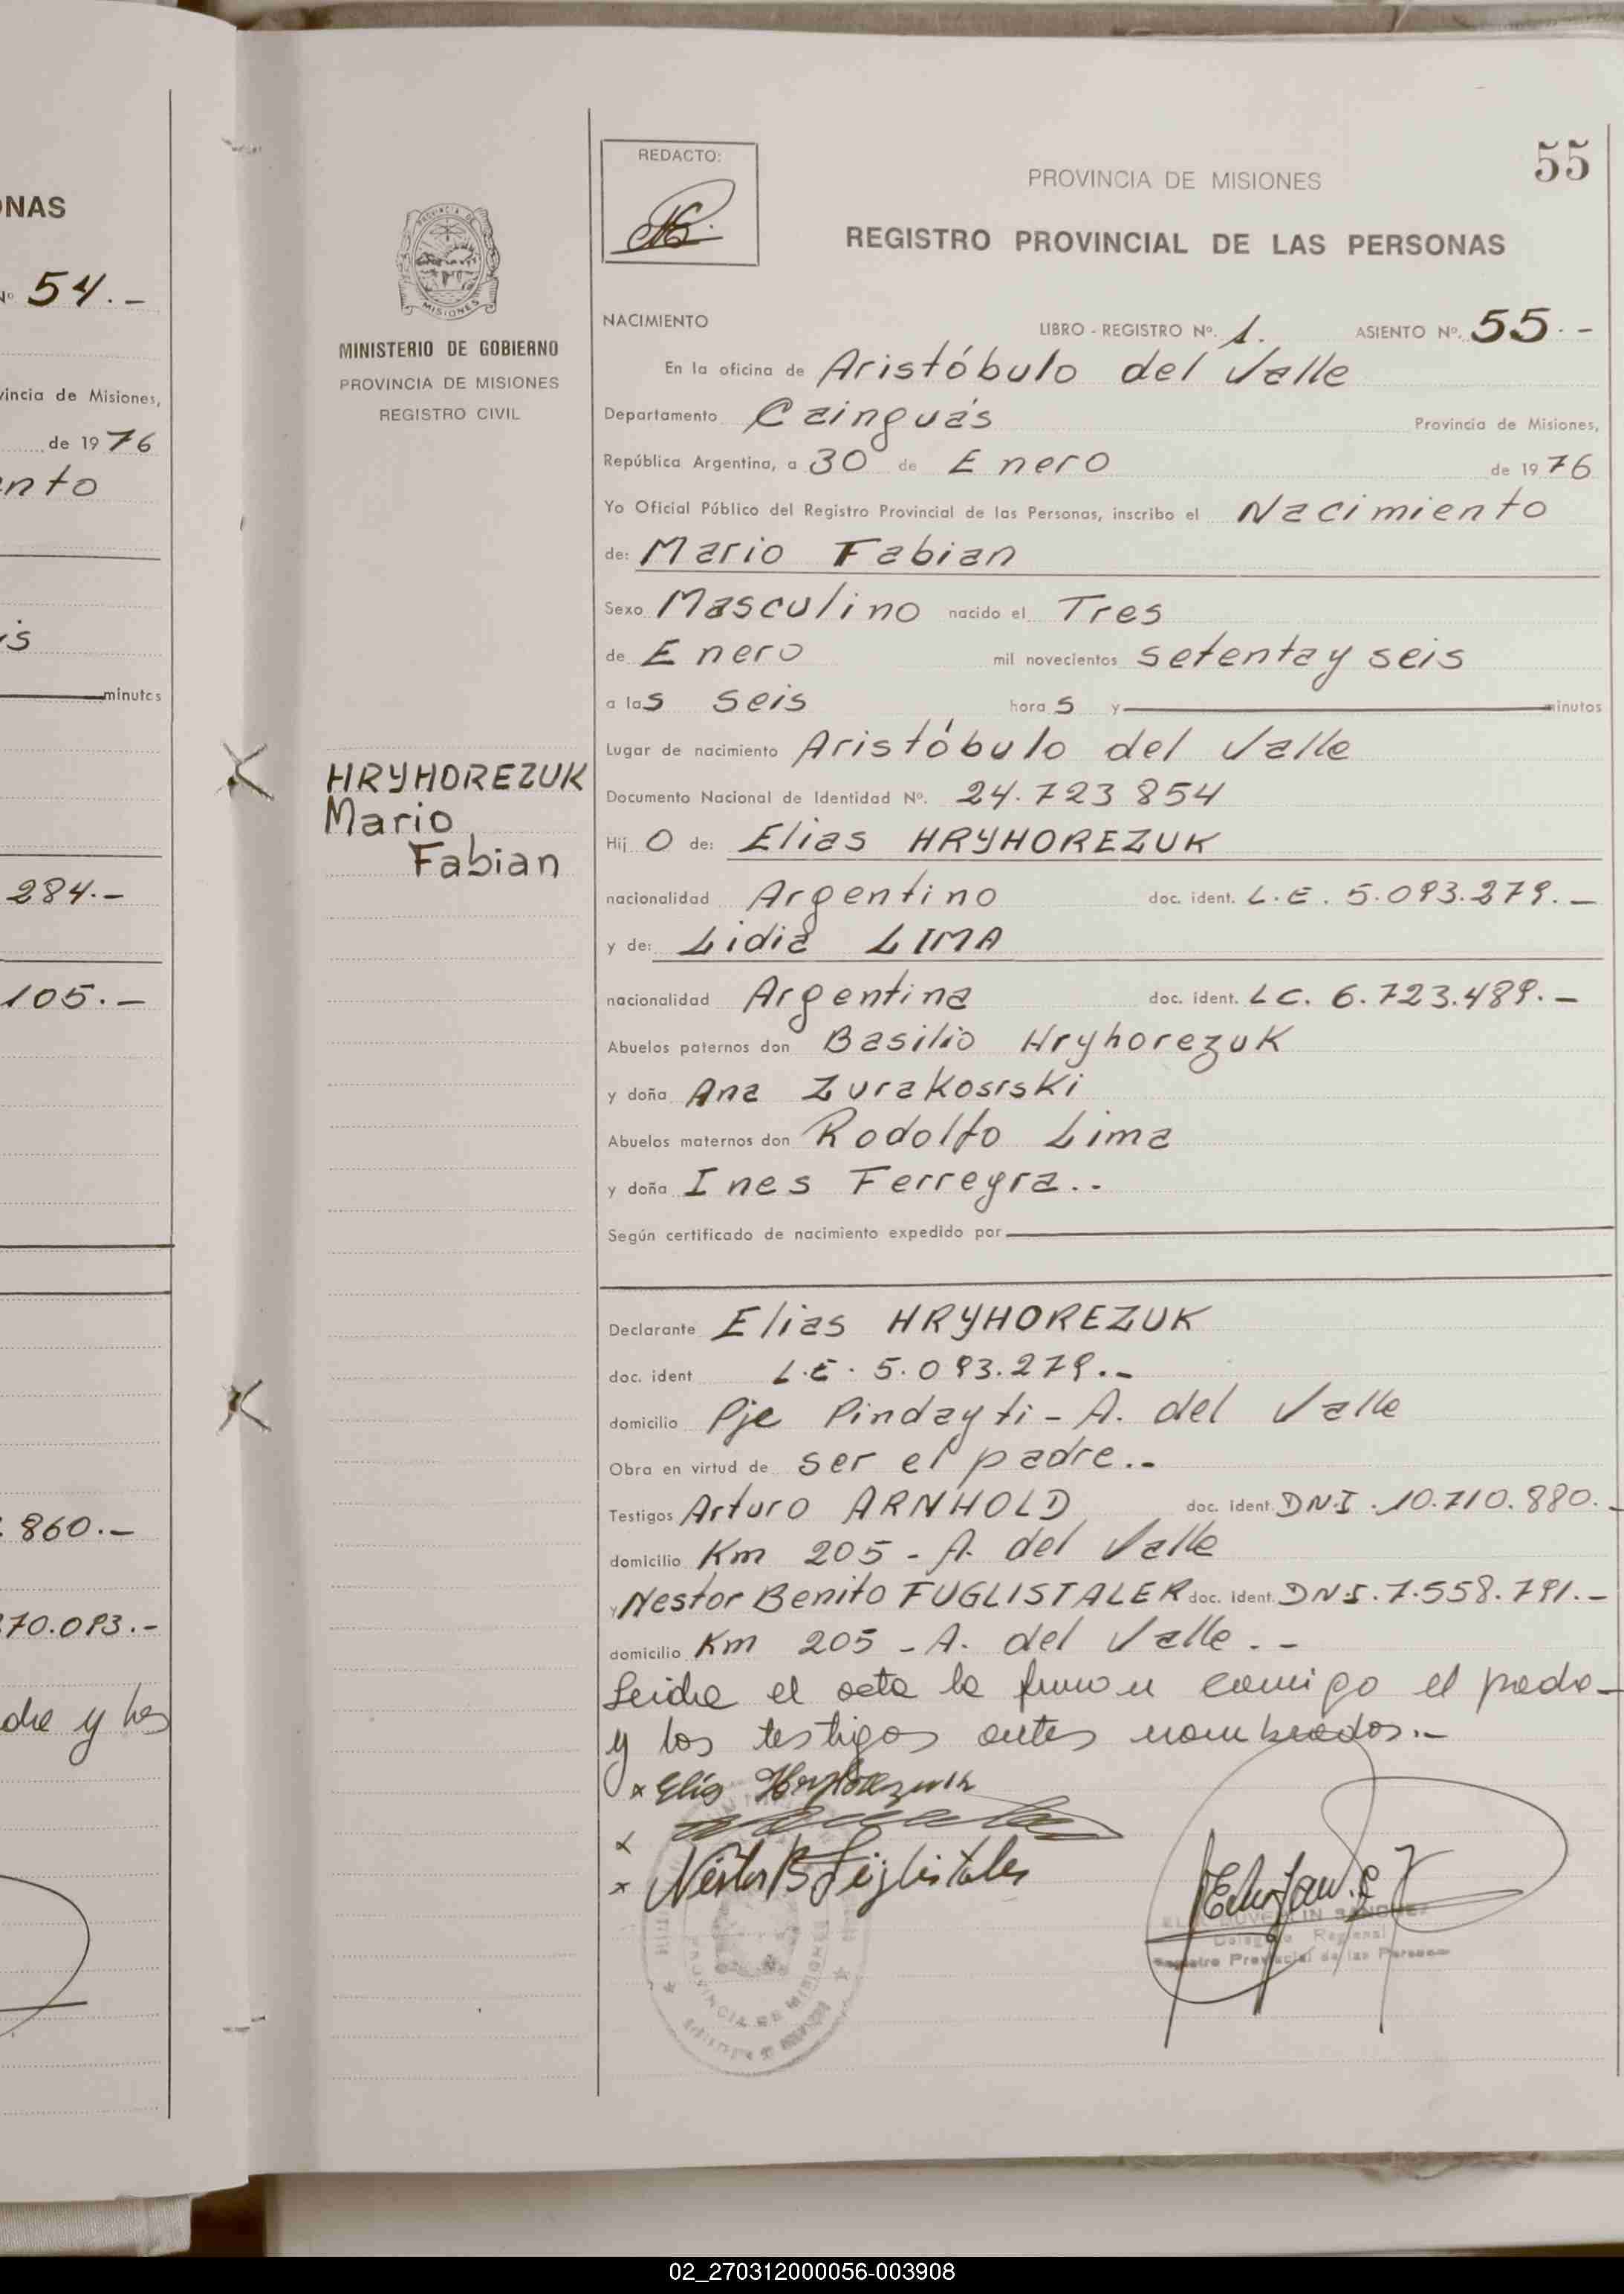 ONAS
Nº 54.-
vincia de Misiones,
de 1976
nto
is
minutos
284.-
105.-
860.-
70.093.-
dre y los
MISIONES
MINISTERIO DE GOBIERNO
PROVINCIA DE MISIONES
REGISTRO CIVIL
HRYHOREZUK
Mario
Fabian
REDACTO:
55
PROVINCIA DE MISIONES
REGISTRO PROVINCIAL DE LAS PERSONAS
NACIMIENTO LIBRO - REGISTRO Nº. 1. ASIENTO Nº. 55.-
En la oficina de Aristóbulo del Valle
Departamento Cainguás Provincia de Misiones,
República Argentina, a 30 de Enero de 1976
Yo Oficial Público del Registro Provincial de las Personas, inscribo el Nacimiento
de: Mario Fabian
Sexo Masculino nacido el Tres
de Enero mil novecientos setenta y seis
a las seis horas y minutos
Lugar de nacimiento Aristóbulo del Valle
Documento Nacional de Identidad Nº. 24.723854
Hijo de: Elias HRYHOREZUK
nacionalidad Argentino doc. ident. L.E. 5.093.279.-
y de: Lidia LIMA
nacionalidad Argentina doc. ident. LC. 6.723.489.-
Abuelos paternos don Basilio Hryhorezuk
y doña Ana Zurakosrski
Abuelos maternos don Rodolfo Lima
y doña Ines Ferreyra..
Según certificado de nacimiento expedido por
Declarante Elias HRYHOREZUK
doc. ident L.E. 5.093.279.-
domicilio Pje Pindayti - A. del Valle
Obra en virtud de ser el padre..
Testigos Arturo ARNHOLD doc. ident. DN.I. 10.710.880.-
domicilio Km 205 - A. del Valle
y Nestor Benito FUGLISTALER doc. ident. DN.I. 7.558.791.-
domicilio Km 205 - A. del Valle.-
Leida el acta la firman conmigo el padre
y los testigos antes nombrados.-
x Elias Hryhorezuk
x
x Néstor B Füglistaler
PROVINCIA DE MISIONES
SANCHEZ
Delegado Regional
Registro Provincial de las Personas
02_270312000056-003908